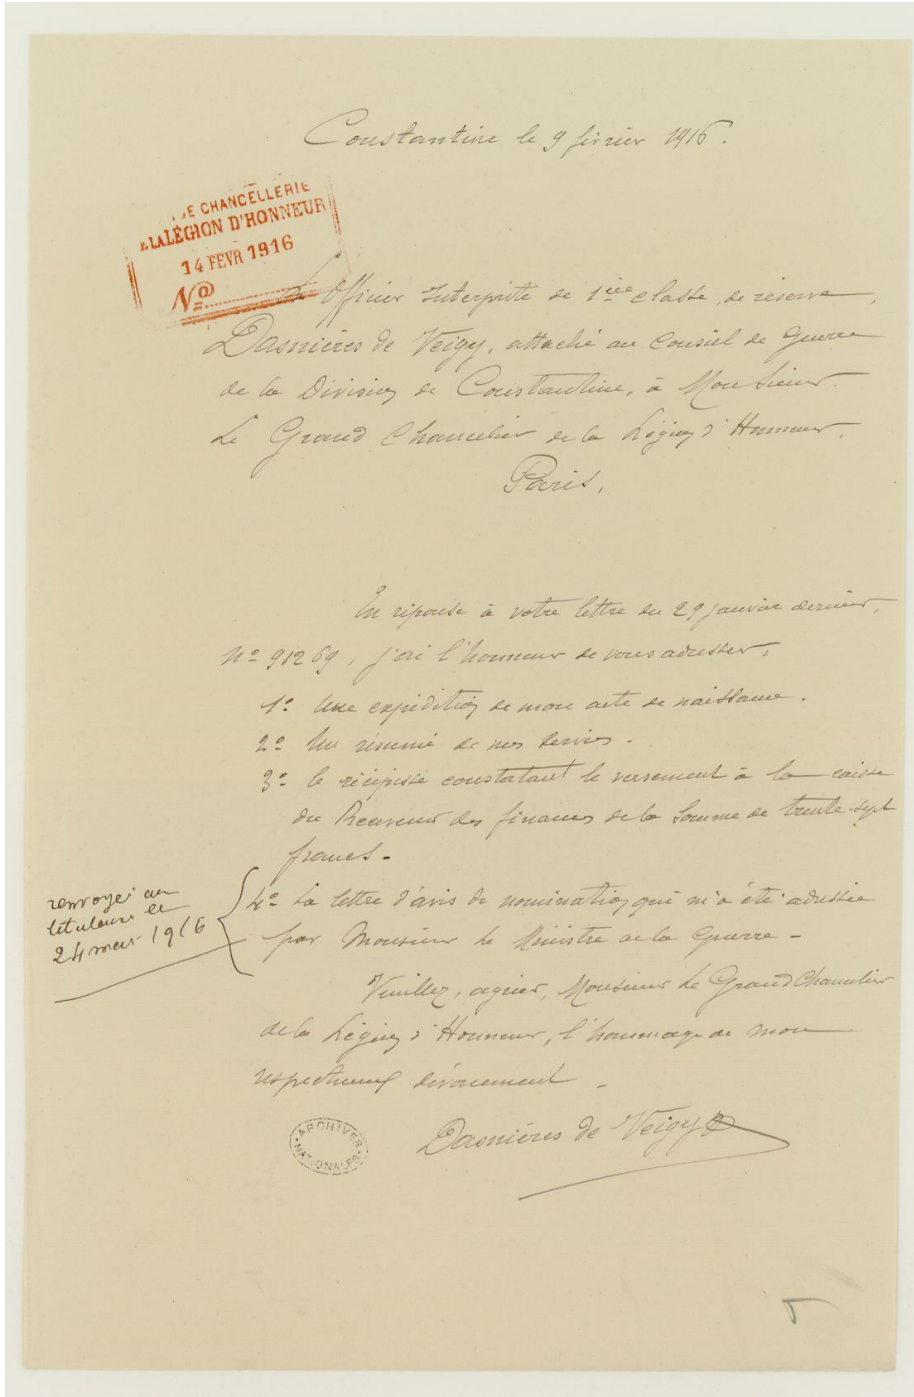 Constantine le 9 février 1916.
DE CHANCELLERIE
LA LÉGION D'HONNEUR
14 FEVR 1916
No
L'Officier Interprète de 1ière classe, de réserve,
Dasnières de Veigy, attaché au Conseil de Guerre
de la Division de Constantine, à Monsieur
Le Grand Chancelier de la Légion d'Honneur,
Paris.
En réponse à votre lettre du 29 janvier dernier,
No 91269, j'ai l'honneur de vous adresser:
1o Une expédition de mon acte de naissance.
2o Un résumé de mes services.
3o le récépissé constatant le versement à la caisse
du Receveur des finances de la somme de trente-sept
francs.
4o La lettre d'avis de nomination qui m'a été adressée
par Monsieur le Ministre de la Guerre -
renvoyé au
titulaire le
24 mars 1916
Veuillez, agréer, Monsieur Le Grand Chancelier
de la Légion d'Honneur, l'hommage de mon
respectueux dévouement -
Dasnières de Veigy
ARCHIVES
NATIONALES